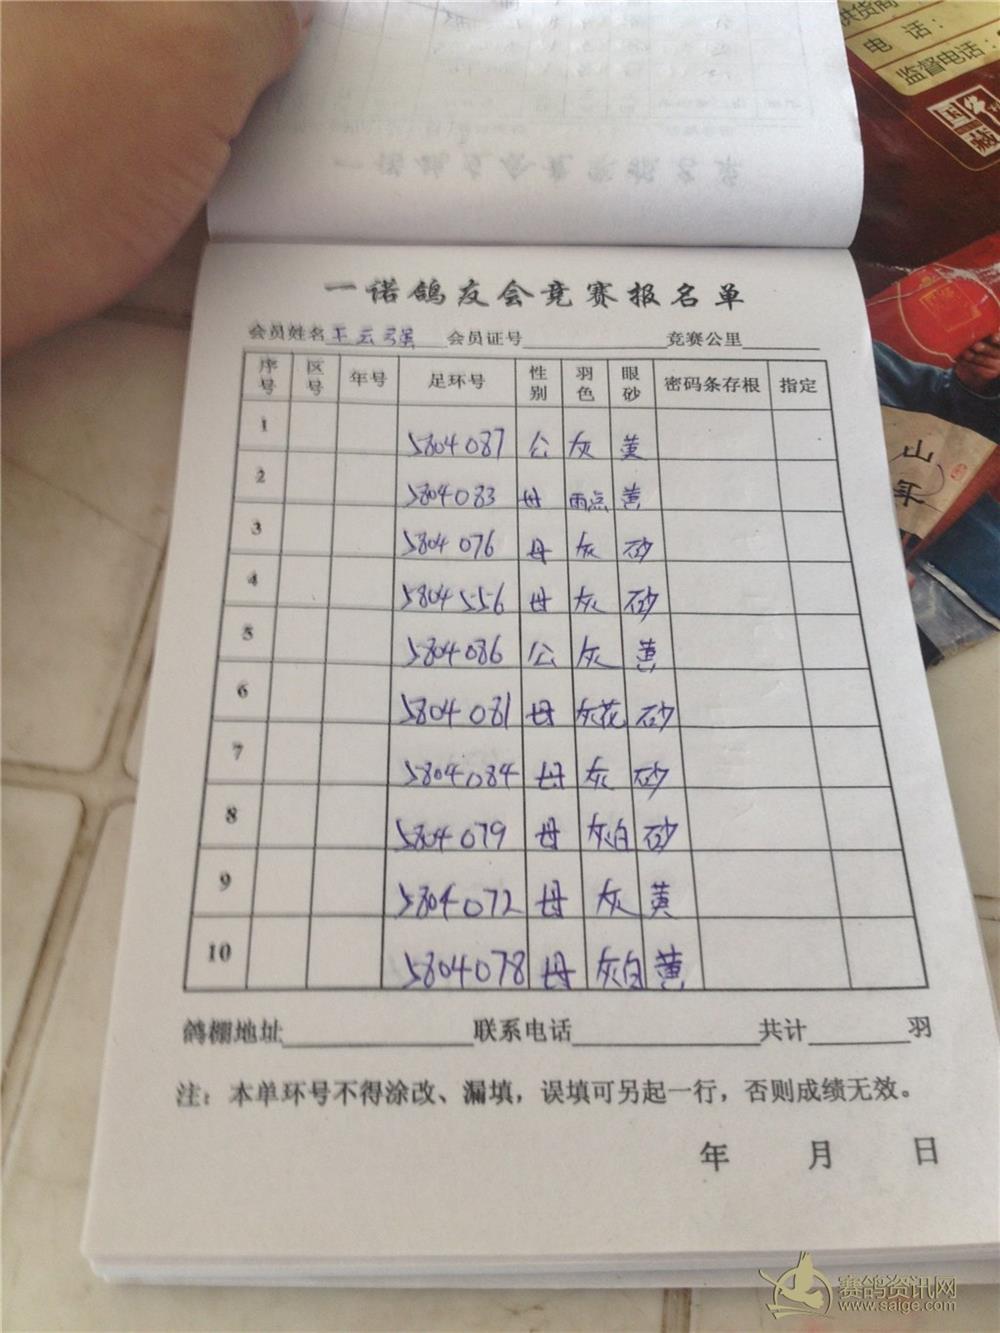 供货商
电 话：
监督电话：
国
山
年
一诺鸽友会竞赛报名单
会员姓名 王云强 会员证号 竞赛公里
序号 区号 年号 足环号 性别 羽色 眼砂 密码条存根 指定
1 5804087 公 灰 黄
2 5804083 母 雨点 黄
3 5804076 母 灰 砂
4 5804556 母 灰 砂
5 5804086 公 灰 黄
6 5804081 母 灰花 砂
7 5804084 母 灰 砂
8 5804079 母 灰白 砂
9 5804072 母 灰 黄
10 5804078 母 灰白 黄
鸽棚地址 联系电话 共计 羽
注：本单环号不得涂改、漏填，误填可另起一行，否则成绩无效。
年 月 日
赛鸽资讯网
www.saige.com